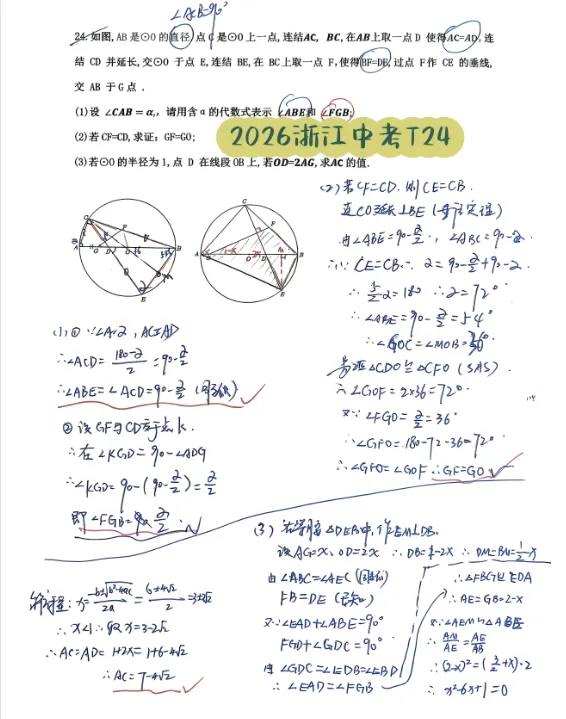 ∠ACB=90°
24.如图, AB 是⊙O 的直径, 点 C 是⊙O 上一点, 连结AC, BC, 在AB上取一点 D 使得AC=AD, 连
结 CD 并延长, 交⊙O 于点 E, 连结 BE, 在 BC上取一点 F, 使得BF=DE, 过点 F 作 CE 的垂线,
交 AB 于 G 点 .
(1)设 ∠CAB = α,, 请用含 α 的代数式表示 ∠ABE和 ∠FGB;
(2)若 CF=CD, 求证: GF=GO;
(3)若⊙O 的半径为 1, 点 D 在线段 OB 上, 若OD=2AG, 求AC 的值.
2026浙江中考T24
(1) ① ∵∠A=2, AC=AD
∴∠ACD= (180-2)/2 =90-2/2
∴∠ABE=∠ACD=90-2/2
② 设 GF与CD
∴在∠KGD=90-∠ADG
∴∠KGD=90-(90-2/2)=2/2
即∠FGB=2/2
(2) 若CF=CD. 则CE=CB.
由∠ABE=90-2/2, ∠ABC=90-2
∵CE=CB∴ 2=90-2/2+90-2
∴ 5/2 2=180 ∴2=72°
∴∠ABE=90-2/2=54°
∴∠GOC=∠MOB=36°
△CDO≌△CFO (SAS)
∴∠GOF=2×36=72°
又∵∠FGO=2/2=36°
∴∠GFO=180-72-36=72°
∴∠GFO=∠GOF ∴GF=GO
(3) 在等腰△DEB中, 作EM⊥DB.
设AG=x, OD=2x ∴DB=1-2x ∴DM=BM=1/2-x
由∠ABC=∠AEC
FB=DE (已知)
又∵∠EAD+∠ABE=90°
FGD+∠GDC=90°
由∠GDC=∠EDB=∠EBD
∴∠EAD=∠FGB
∴△FBG≌EDA
∴AE=GB=2-x
∵△AEM∽△ABE
∴ AM/AE = AE/AB
∴(2-x)²=(3/2+x)·2
∴x²-6x+1=0
解方程: x= (-b±√(b²-4ac))/2a = (6±4√2)/2 =3±2√2
∴x<1∴取x=3-2√2
∴AC=AD=1+2x=1+6-4√2
∴AC=7-4√2